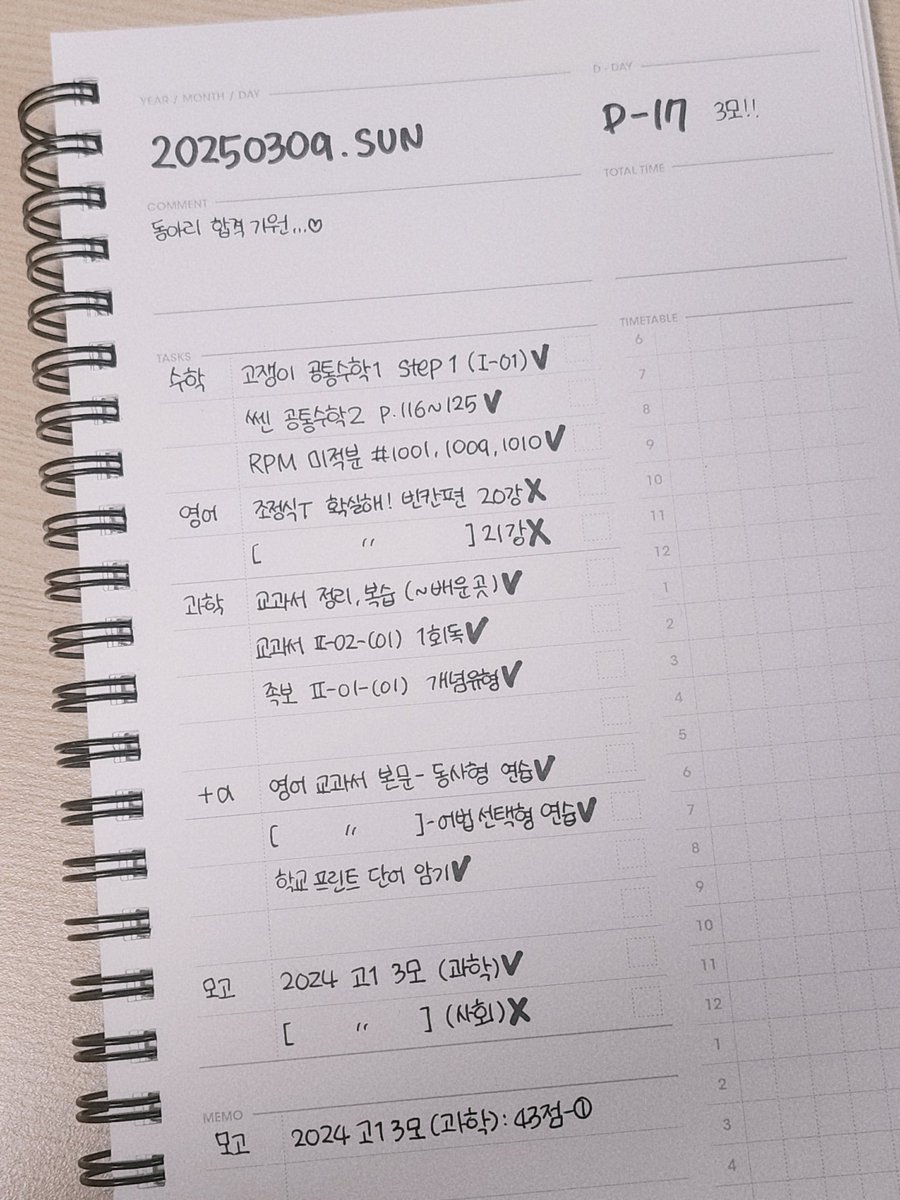 YEAR / MONTH / DAY
D - DAY
20250309. SUN
D-17 3모!!
COMMENT
TOTAL TIME
동아리 합격 기원...♡
TASKS
TIMETABLE
수학 고쟁이 공통수학1 Step 1 (I-01) ✔
쎈 공통수학2 P.116~125 ✔
RPM 미적분 #1001, 1009, 1010 ✔
영어 조정식T 확실해! 빈칸편 20강 ✘
[ 〃 ] 21강 ✘
과학 교과서 정리, 복습 (~배운곳) ✔
교과서 II-02-(01) 1회독 ✔
족보 II-01-(01) 개념유형 ✔
+α 영어 교과서 본문 - 동사형 연습 ✔
[ 〃 ] - 어법 선택형 연습 ✔
학교 프린트 단어 암기 ✔
모고 2024 고1 3모 (과학) ✔
[ 〃 ] (사회) ✘
MEMO
모고 2024 고1 3모 (과학) : 43점-①
6
7
8
9
10
11
12
1
2
3
4
5
6
7
8
9
10
11
12
1
2
3
4